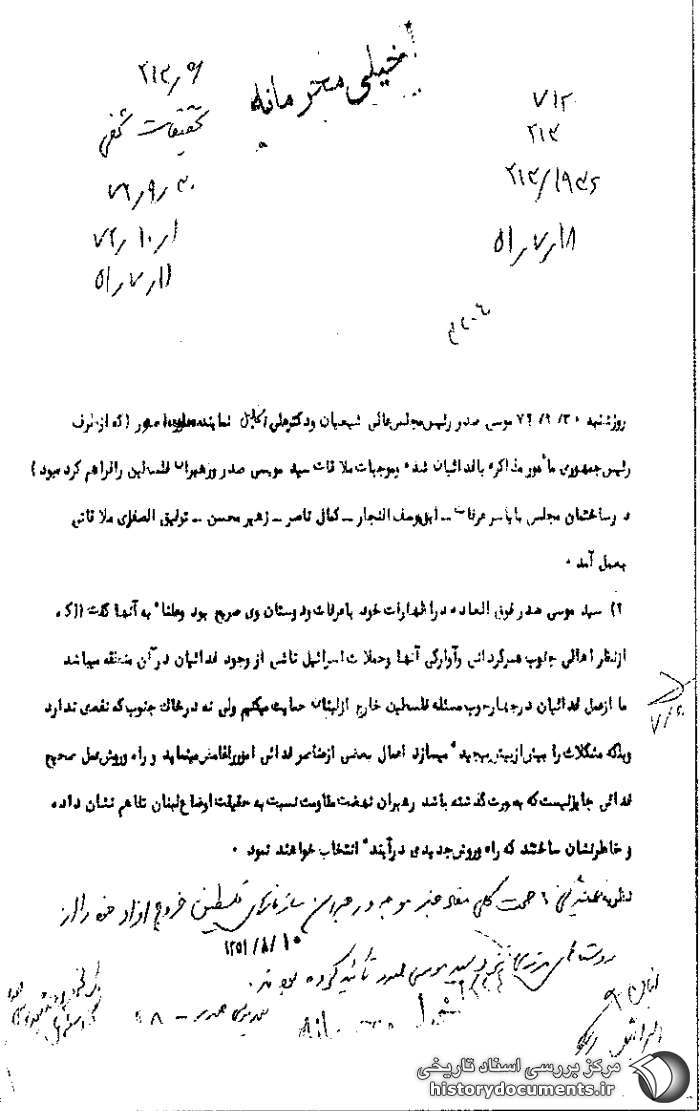 خیلی محرمانه
۷۱۲
۲۱۳
۵۱/۷/۱۸
۲۱۳/۹
تحقیقات
۷۲/۹/۳۰
۷۲/۱۰/۱
۵۱/۷/۱۱
روزشنبه ۷۲/۹/۳۰ موسی صدر رئیس مجلس عالی شیعیان ودکترعلی نماینده صور (که ازطرف
رئیس جمهوری مأمور مذاکره بافدائیان شده وموجبات ملاقات سید موسی صدر ورهبران فلسطین رافراهم کرده بود)
در ساختمان مجلس با یاسر عرفات ــ ابویوسف النجار ــ کمال ناصر ــ زهیر محسن ــ توفیق الصفدی ملاقاتی
بعمل آمد .
۲) سید موسی صدر فوق العاده در اظهارات خود باعرفات ودوستان وی صریح بود وعلناً به آنها گفت که
ازنظر اهالی جنوب سرگردانی وآوارگی آنها وحملات اسرائیل ناشی از وجود فدائیان در آن منطقه میباشد
ما ازعمل فدائیان در چهارچوب مسئله فلسطین خارج ازلبنان حمایت میکنیم ولی نه درخاک جنوب که نفعی ندارد
وبلکه مشکلات را بیش ازپیش پیچیده میسازد اعمال بعضی ازعناصر فدائی وراه وروش عمل صحیح
فدائی جایزنیست که بصورت گذشته باشد رهبران نهضت مقاومت نسبت به حقیقت اوضاع لبنان تفاهم نشان داده
و خاطرنشان ساختند که راه وروش جدیدی درآینده انتخاب خواهند نمود .
نظریه صحت کلی مفاد خبر موجه و رهبران سازمانهای فلسطین خروج افراد خود را از
روستاهای مرزی سید موسی صدر تائید کرده بودند.
۱۳۵۱/۸/۱۰
لبنان ۹
مرکز بررسی اسناد تاریخی
historydocuments.ir